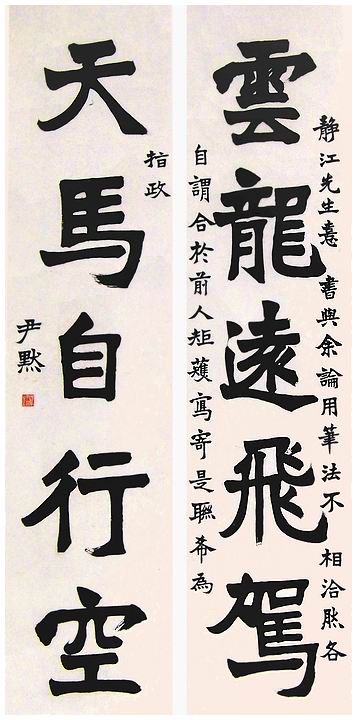 雲龍遠飛駕
天馬自行空
静江先生憙書與余論用筆法不相洽然各
自謂合於前人矩蒦寫寄是聯希為
指政
尹默